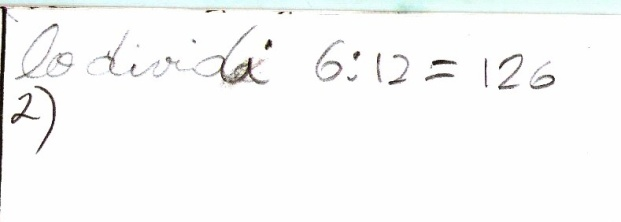 lo dividi 6:12=126
2)